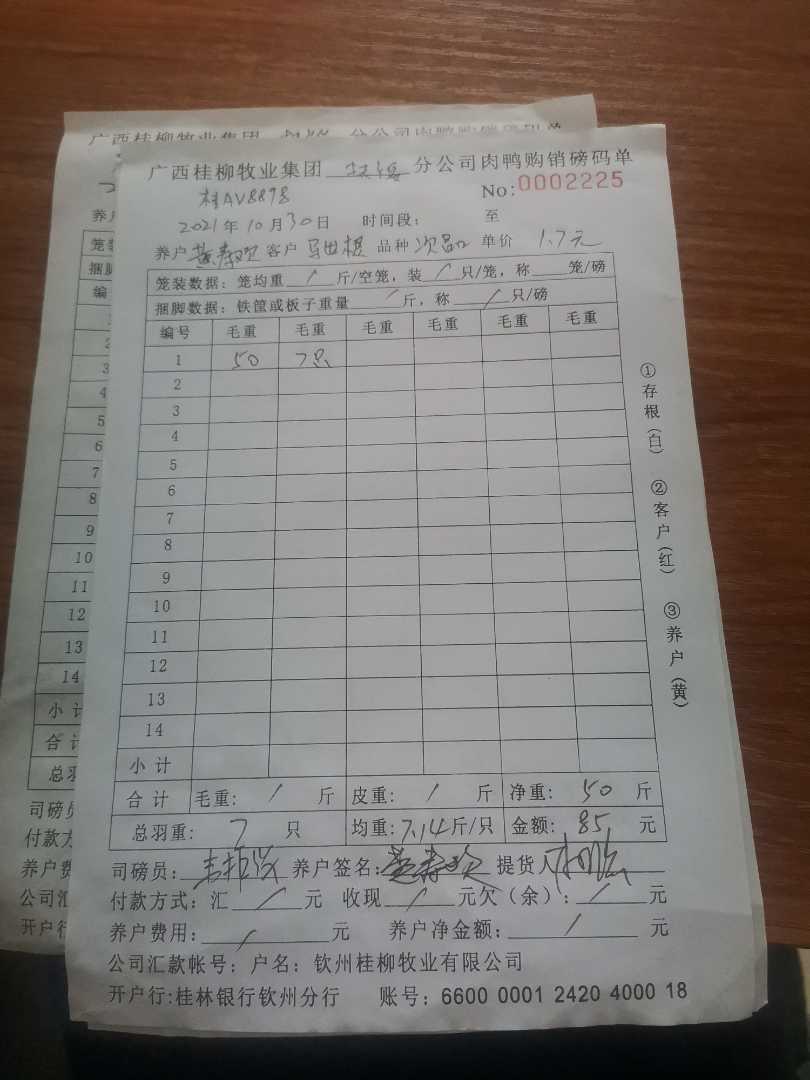 广西桂柳牧业集团 分公司肉鸭购销磅码单
桂AV8898 No:0002225
2021年10月30日 时间段: 至
养户 黄春欢 客户 马世根 品种 次品 单价 1.7元
笼装数据: 笼均重 / 斤/空笼, 装 / 只/笼, 称 笼/磅
捆脚数据: 铁筐或板子重量 / 斤, 称 / 只/磅
编号 毛重 毛重 毛重 毛重 毛重 毛重
1 50 7只
2
3
4
5
6
7
8
9
10
11
12
13
14
小计
合计 毛重: / 斤 皮重: / 斤 净重: 50 斤
总羽重: 7 只 均重: 7.14斤/只 金额: 85 元
司磅员: 养户签名: 黄春欢 提货人
付款方式: 汇 / 元 收现 / 元欠(余): / 元
养户费用: / 元 养户净金额: / 元
公司汇款帐号: 户名: 钦州桂柳牧业有限公司
开户行:桂林银行钦州分行 账号: 6600 0001 2420 4000 18
①存根(白) ②客户(红) ③养户(黄)
广西桂柳牧业集团 分公司肉鸭购销磅码单
养户
笼装
捆脚
编
3
4
5
6
7
8
9
10
11
12
13
14
小计
合计
总羽
司磅员
付款方
养户费
公司汇
开户行